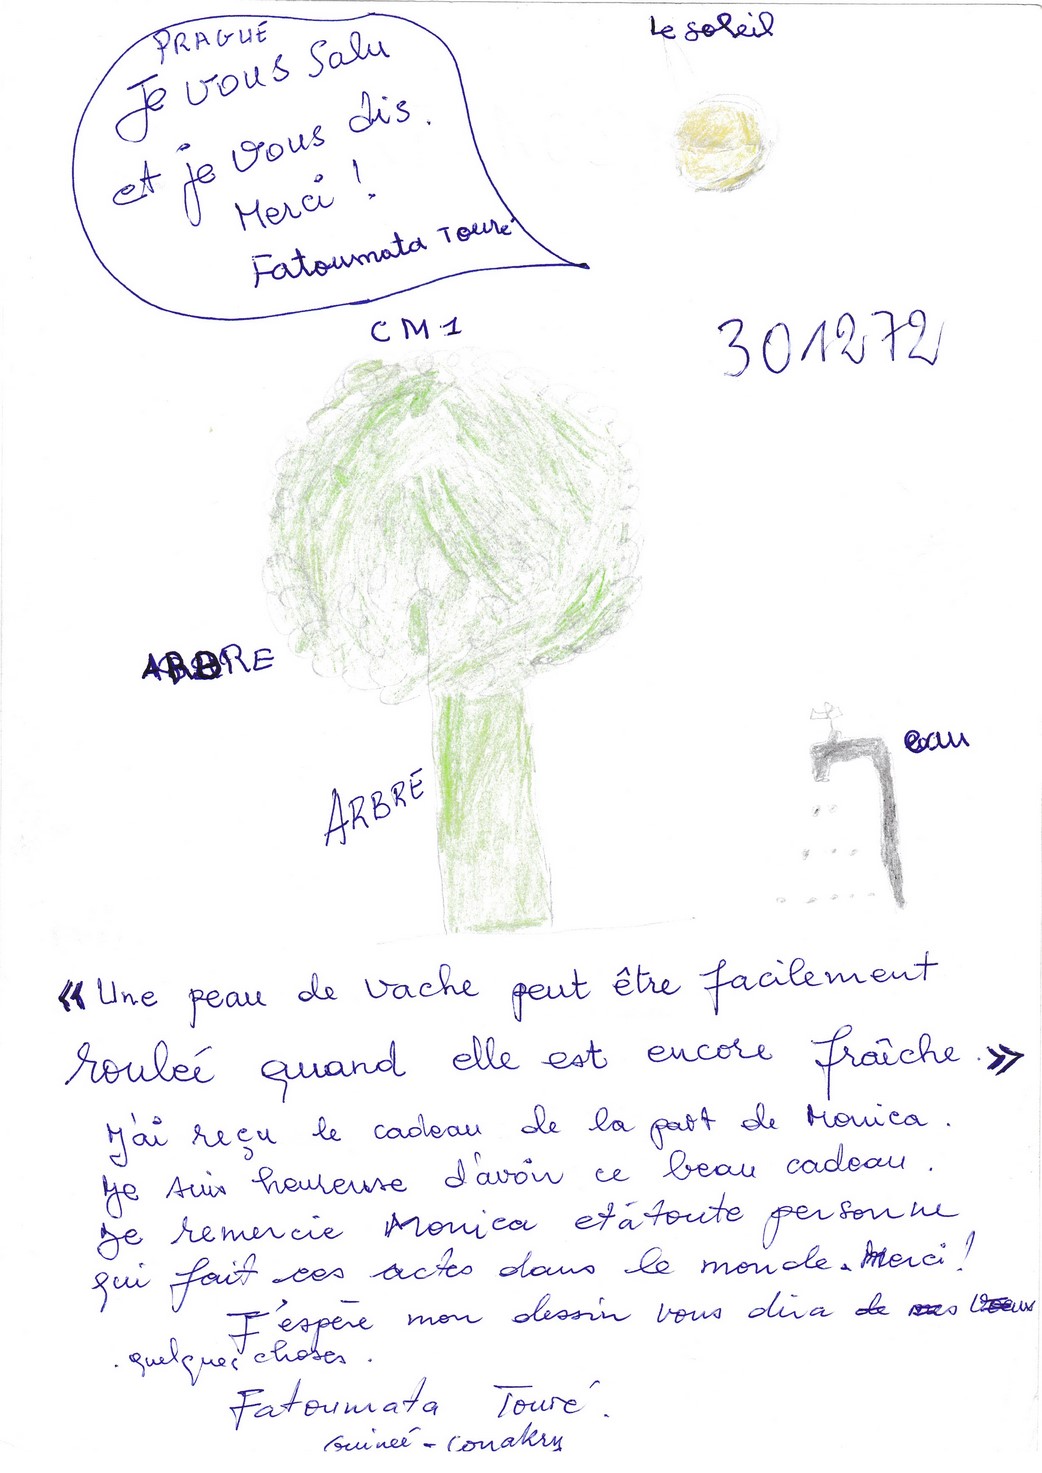 PRAGUE
Je vous Salu
et je vous dis.
Merci !
Fatoumata Touré
Le soleil
CM1
301272
ARBRE
ARBRE
eau
« Une peau de vache peut être facilement
roulée quand elle est encore fraîche. »
J'ai reçu le cadeau de la part de Monica.
Je suis heureuse d'avoir ce beau cadeau.
Je remercie Monica et à toute personne
qui fait ces actes dans le monde. Merci !
J'espère mon dessin vous dira
quelques choses.
Fatoumata Touré.
Guinée - Conakry